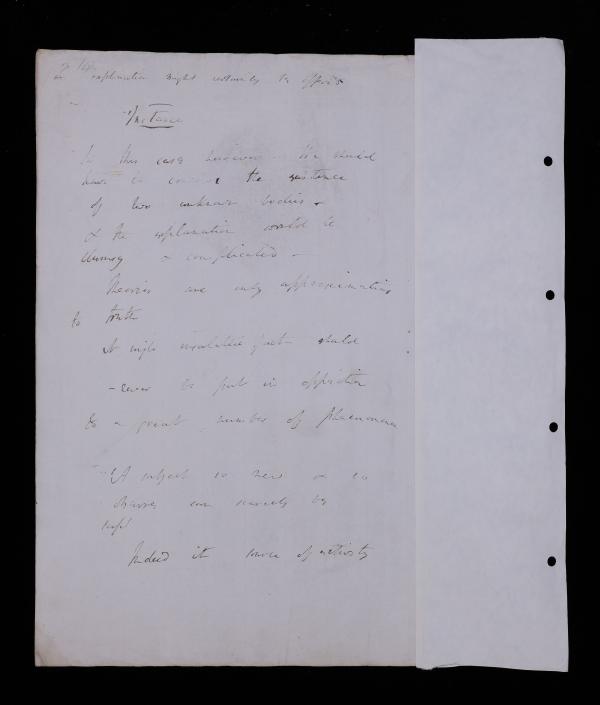 explanation might certainly be offered
Instance
In this case however we should
have to conceive the existence
of two unknown bodies.
& the explanation would be
clumsy & complicated -
Theories are only approximations
to truth
A single insulated fact should
never be put in opposition
to a great number of phaenomena
A subject so new & so
can scarcely be
Indeed it source of activity